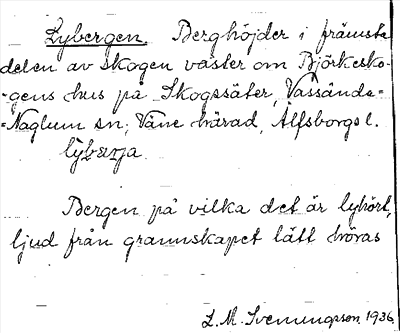 Lybergen. Berghöjder i främsta
delen av skogen väster om Björkesko-
-gens hus på Skogssäter, Vassända-
=Naglum sn; Väne härad, Älfsborgs l.
lybærja
Bergen på vilka det är lyhört,
ljud från grannskapet lätt höras
L. M. Svenungsson 1936